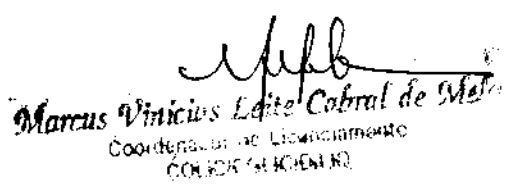 Marcus Vinicius Leite Cabral de Melo
Coordenador de Licenciamento